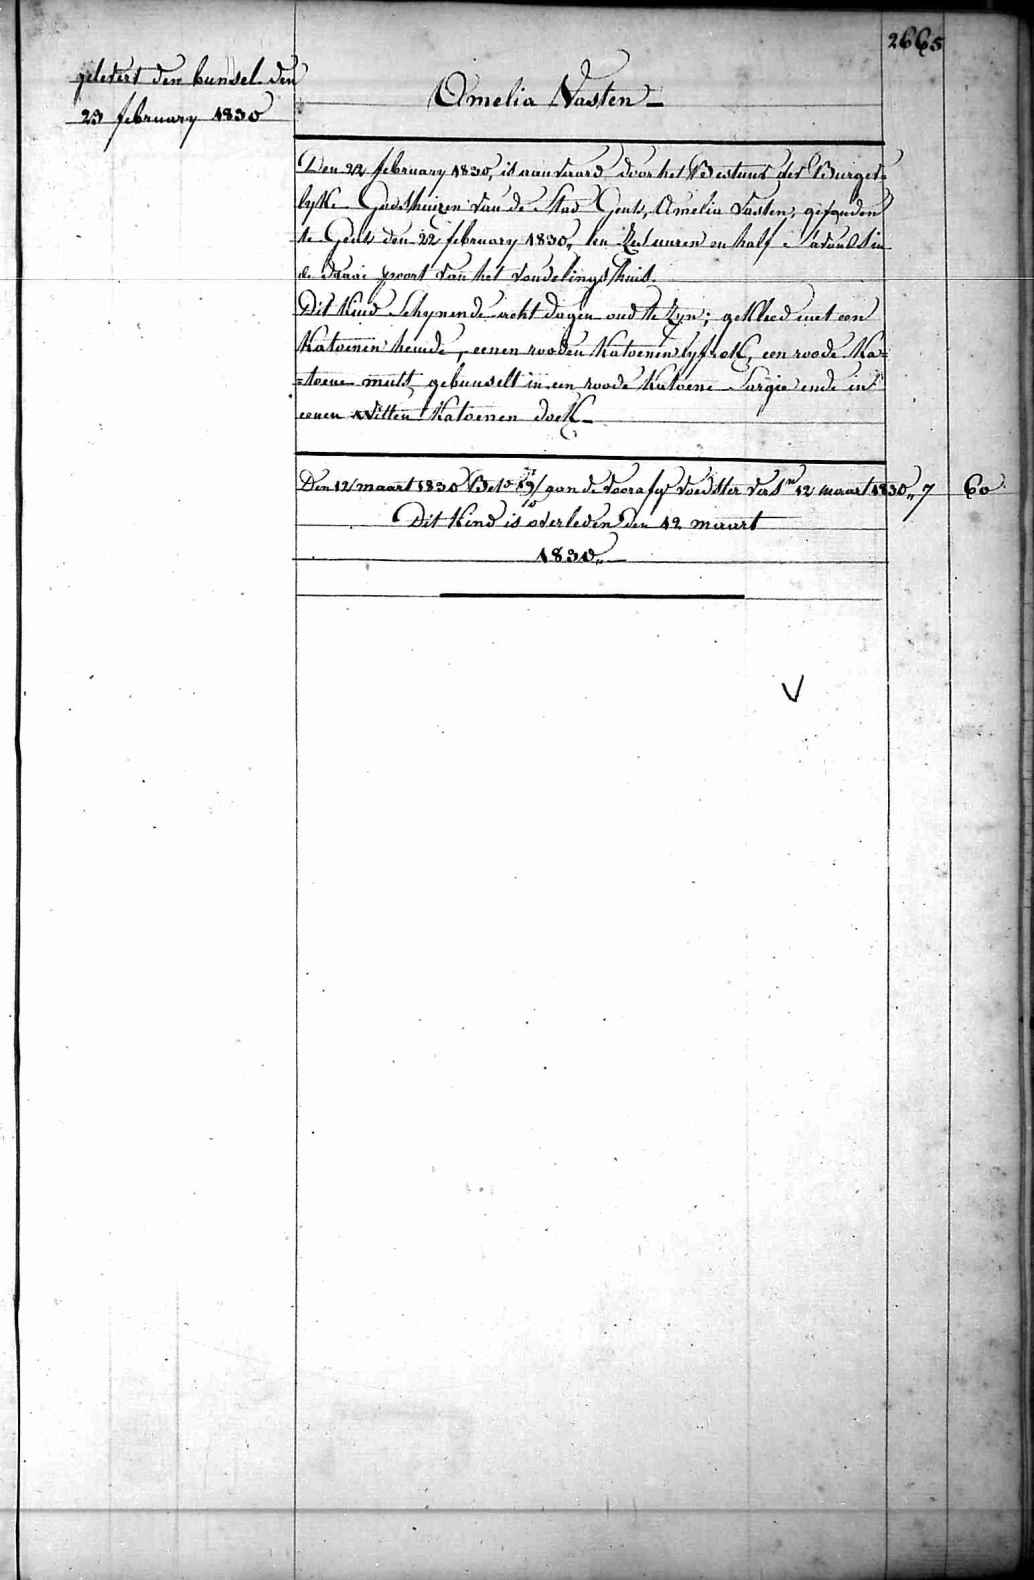 2665
gelevert den bunsel den
23 february 1830
Amelia Vasten
Den 22 february 1830, is aanvaard door het Bestuur der Burger-
lyke Godshuizen van de Stad Gent, Amelia Vasten, gevonden
te Gent den 22 february 1830, ten Zes uuren en half s'avonds in
de draai poort van het vondelings huis.
Dit Kind Schynende acht dagen oud te Zyn; gekleed met een
Katoenen hemde, eenen rooden Katoenen lyfrok, een roode Ka=
=toene muts, gebunselt in een roode Katoene Sargie ende in
eenen witten Katoenen doek
Den 12 maart 1830 Bet° aan de voorafge voedster vers.n 12 maart 1830,, 7 60
Dit Kind is overleden den 12 maart
1830,,